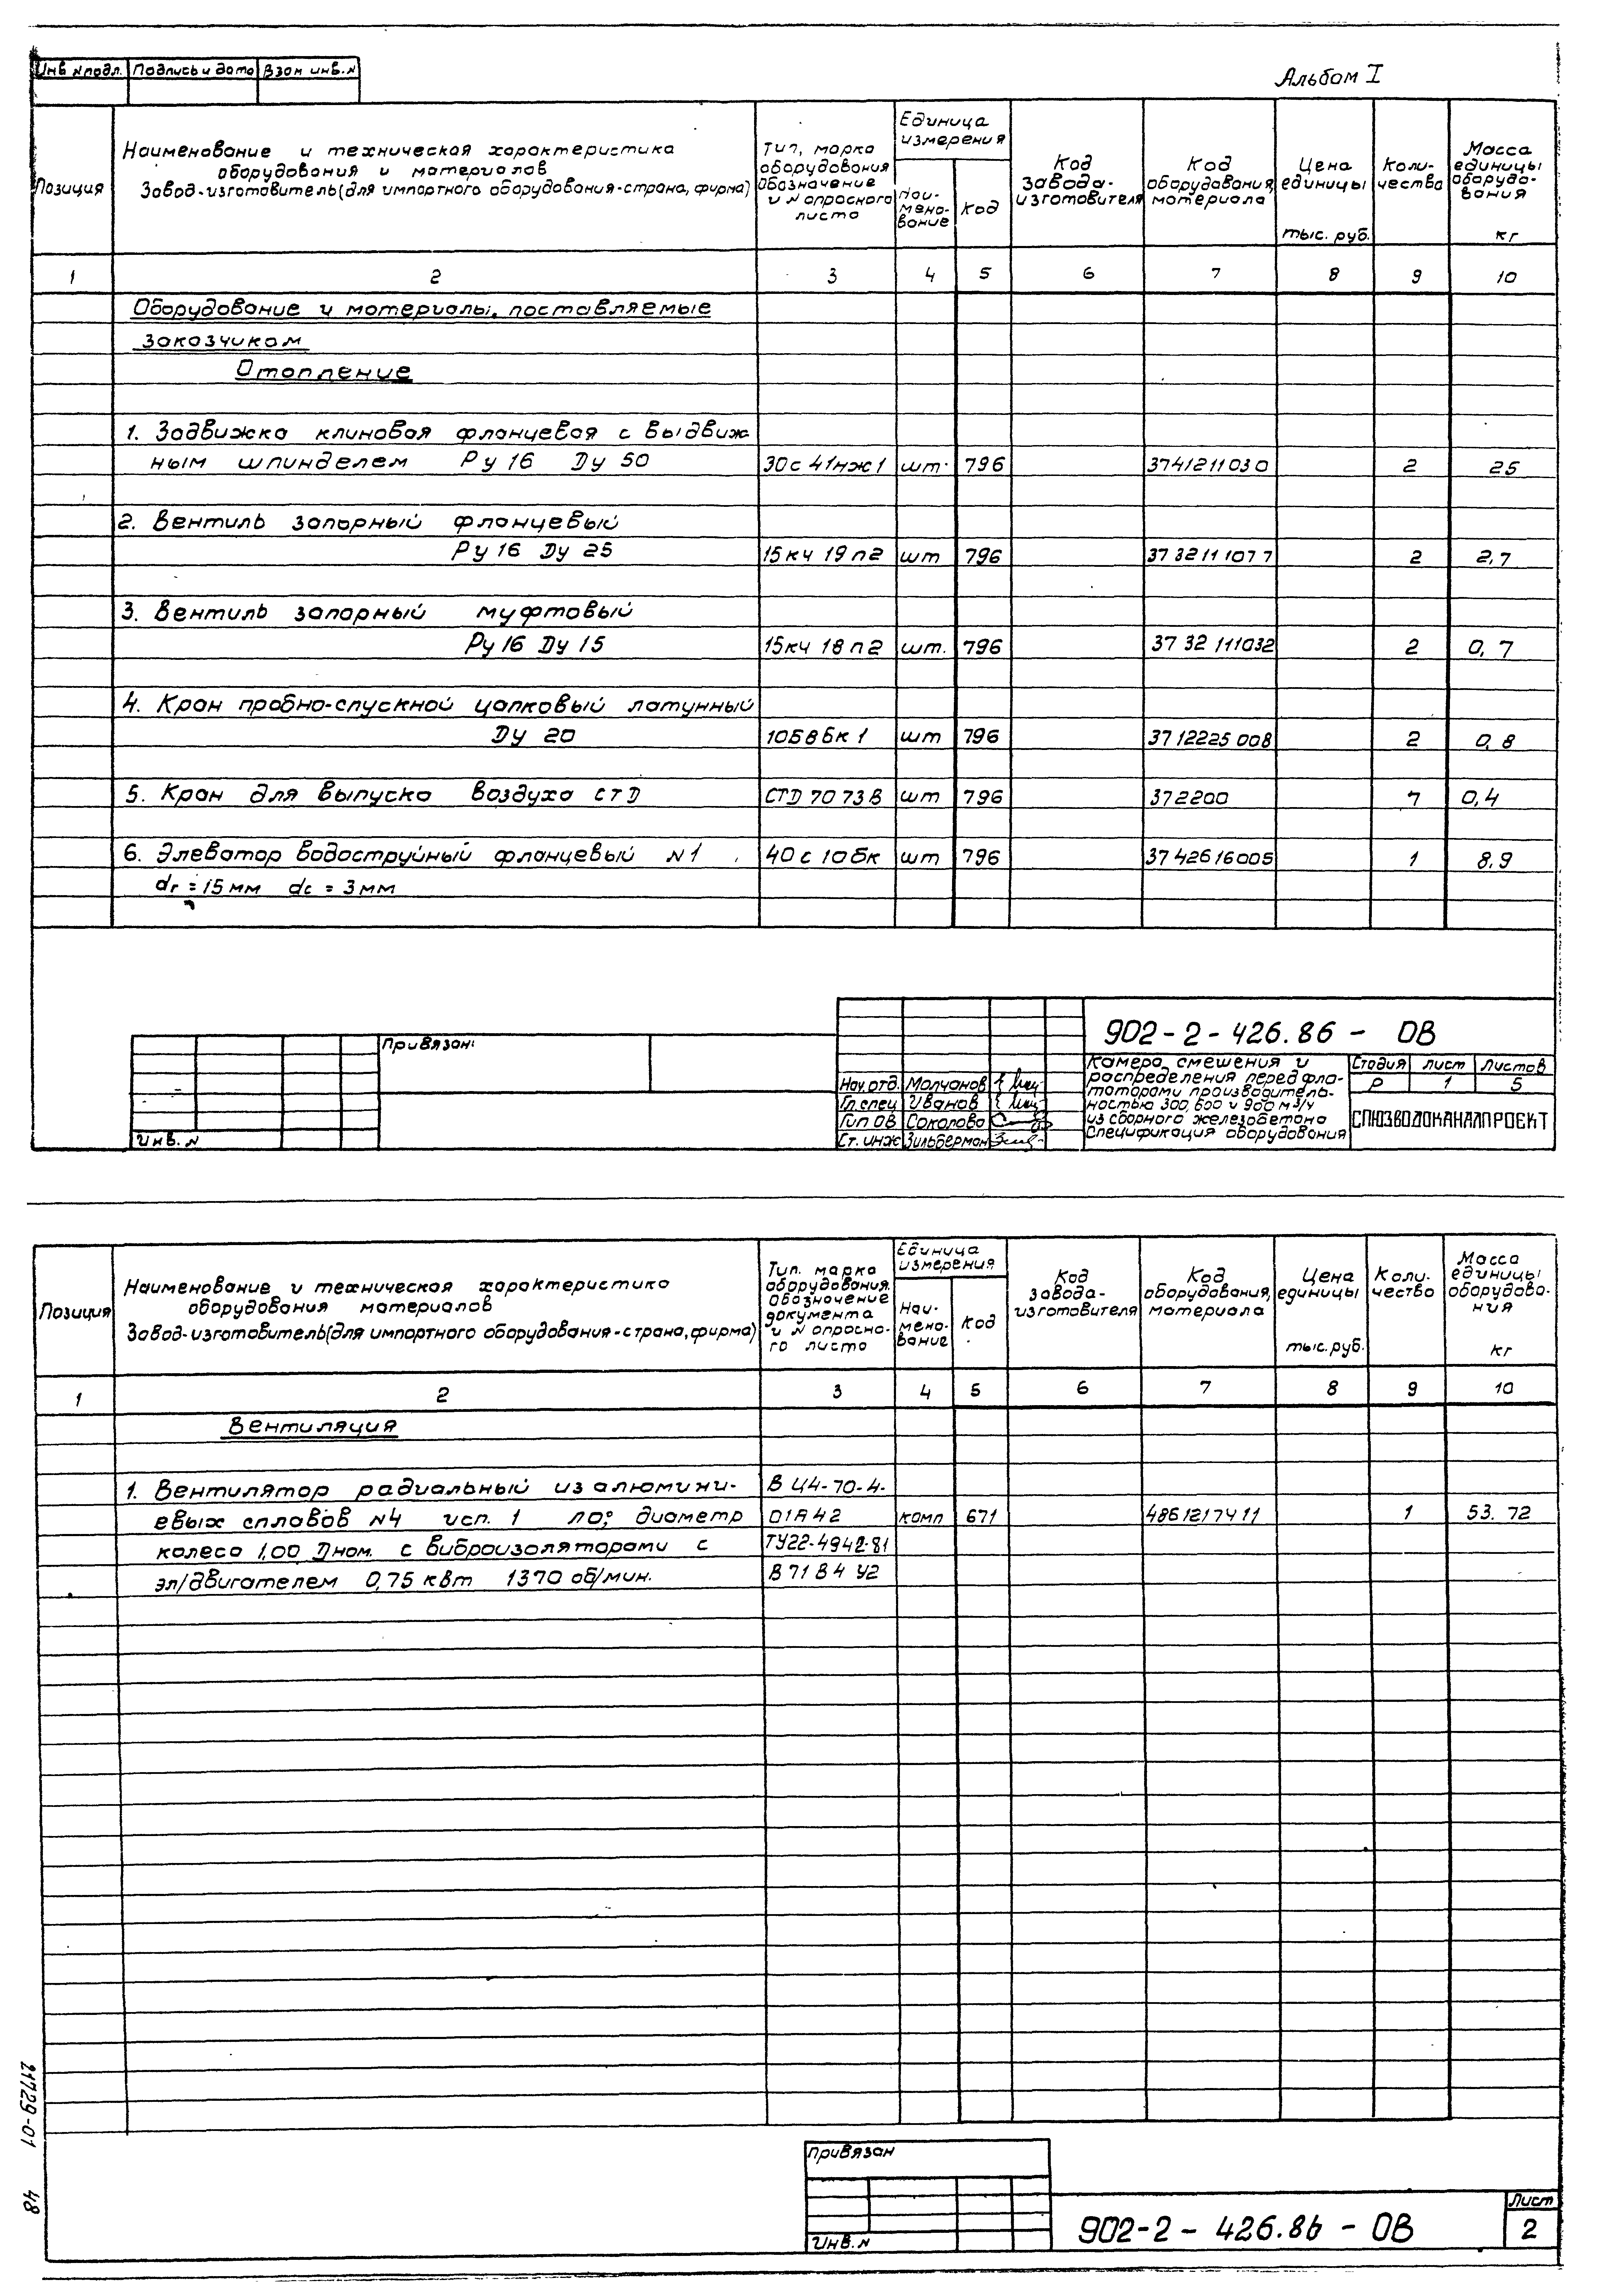 Инв №подл. Подпись и дата Взам инв.№
Альбом I
Позиция
Наименование и техническая характеристика
оборудования и материалов
Завод-изготовитель(для импортного оборудования-страна, фирма)
Тип, марка
оборудования
Обозначение
и № опросного
листа
Единица
измерения
Наи-
мено-
вание
Код
Код
завода-
изготовителя
Код
оборудования,
материала
Цена
единицы
тыс. руб.
Коли-
чество
Масса
единицы
оборудо-
вания
кг
1 2 3 4 5 6 7 8 9 10
Оборудование и материалы, поставляемые
заказчиком
Отопление
1. Задвижка клиновая фланцевая с выдвиж
ным шпинделем Ру 16 Ду 50 30с 41нж1 шт. 796 3741211030 2 25
2. Вентиль запорный фланцевый
Ру 16 Ду 25 15кч 19п2 шт 796 37 3211 1077 2 2,7
3. Вентиль запорный муфтовый
Ру 16 Ду 15 15кч 18п2 шт. 796 37 32 111032 2 0,7
4. Кран пробно-спускной цапковый латунный
Ду 20 10Б8бк1 шт 796 3712225008 2 0,8
5. Кран для выпуска воздуха СТД СТД 7073В шт 796 372200 7 0,4
6. Элеватор водоструйный фланцевый №1 40с 10бк шт 796 3742616005 1 8,9
dг = 15мм dс = 3мм
Привязан:
Инв. №
902-2-426.86 - ОВ
Нач.отд. Молчанов
Гл.спец Иванов
Гип ОВ Соколова
Ст. инж Зильберман
Камера смешения и
распределения перед фло-
таторами производитель-
ностью 300, 600 и 900 м3/ч
из сборного железобетона
Спецификация оборудования
Стадия Лист Листов
Р 1 5
СОЮЗВОДОКАНАЛПРОЕКТ
Позиция
Наименование и техническая характеристика
оборудования материалов
Завод-изготовитель(для импортного оборудования-страна, фирма)
Тип. марка
оборудования.
Обозначение
документа
и № опросно-
го листа
Единица
измерения
Наи-
мено-
вание
Код
Код
завода-
изготовителя
Код
оборудования,
материала
Цена
единицы
тыс. руб.
Коли-
чество
Масса
единицы
оборудова-
ния
кг
1 2 3 4 5 6 7 8 9 10
Вентиляция
1. Вентилятор радиальный из алюмини- В Ц4-70-4-
евых сплавов №4 исп. 1 ло; диаметр 01А42 комп 671 4861217411 1 53.72
колеса 1,00 Dном. с виброизоляторами с ТУ22-4942-81
эл/двигателем 0,75 квт 1370 об/мин. В71В4 У2
21729-01 48
Привязан
Инв. №
902-2-426.86 - ОВ
Лист
2